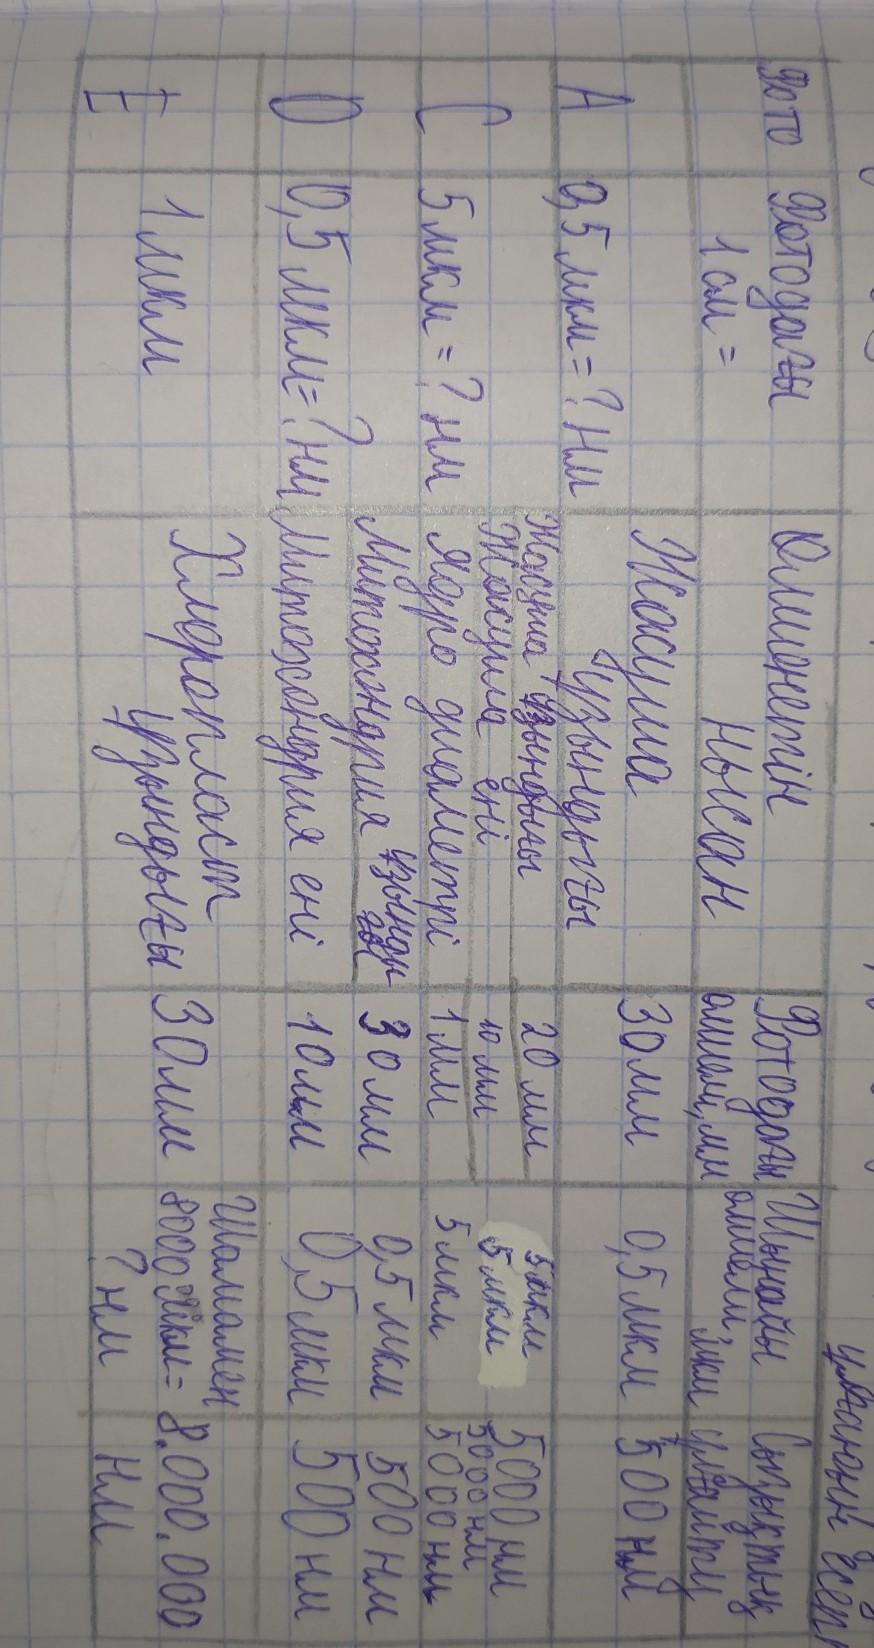 ұлғаюын есеп
Фото
Фотодағы
1 см =
Өлшенетін
нысан
Фотодағы
өлшемі, мм
Шынайы
өлшемі, мкм
Сызықтық
ұлғайту
A
0,5 мкм = ? нм
Жасуша
ұзындығы
30 мм
0,5 мкм
500 нм
C
5 мкм = ? нм
Жасуша ұзындығы
20 мм
5 мкм
5000 нм
Жасуша ені
10 мм
5 мкм
5000 нм
Ядро диаметрі
1 мм
5 мкм
5000 нм
D
0,5 мкм = ? нм
Митохондрия ұзынды
30 мм
0,5 мкм
500 нм
Митохондрия ені
10 мм
0,5 мкм
500 нм
E
1 мкм
Хлоропласт
ұзындығы
30 мм
Шамамен
8000 мкм =
? нм
8.000.000
нм